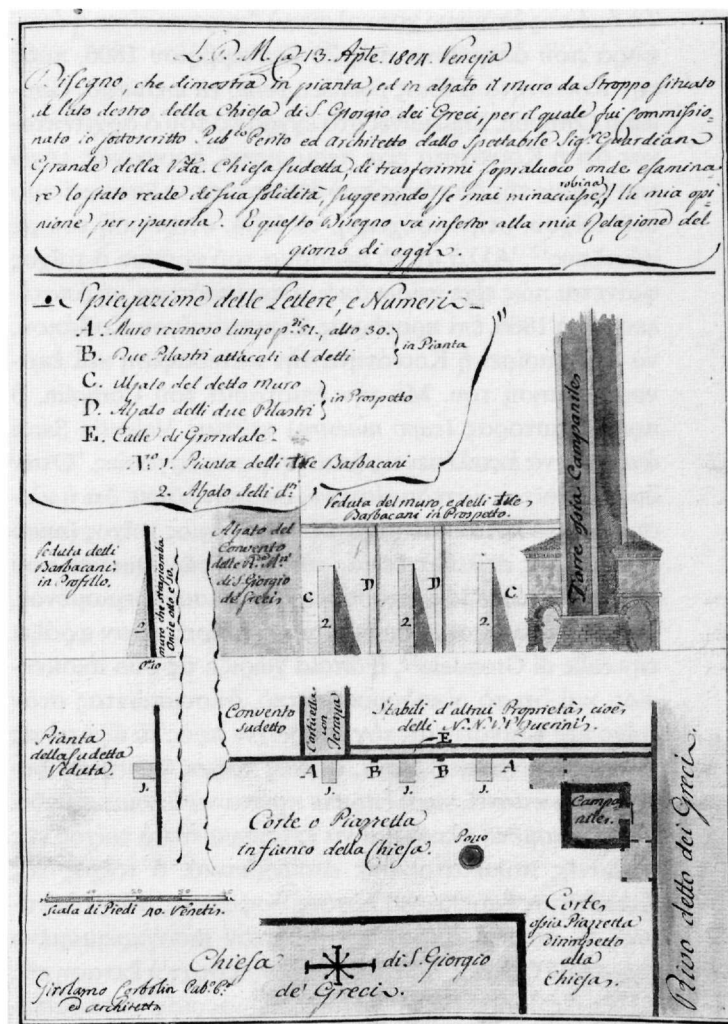 L. M. @ 13. Aple. 1804. Venezia
Disegno, che dimostra in pianta, ed in alzato il muro da Stroppo situato
al lato destro della Chiesa di S. Giorgio dei Greci, per il quale fui commissio-
nato io sottoscritto Pub.co Perito ed architetto dallo Spettabile Sig.r Guardian
Grande della Chiesa sudetta, di trasferirmi sopraluoco onde esamina-
re lo stato reale di sua solidità, suggerindo, se mai minaciasse robina, la mia opi-
nione per ripararla. E questo Disegno va inserto alla mia Relazione del
giorno di oggi.
Spiegazione delle Lettere, e Numeri
A. Muro ruinoso lungo p.di 51, alto 30.
B. Due Pilastri attacati al detto
in Pianta
C. Alzato del detto muro
D. Alzato delli due Pilastri
in Prospetto
E. Calle di Grondale.
N.o 1. Pianta delli tre Barbacani
2. Alzato delli d.i
Veduta del muro, e delli tre
Barbacani in Prospetto.
Torre ossia Campanile
Veduta delli
Barbacani
in Profillo.
muro che strapiomba
Oncie otto e 30.
Alzato del
Convento
delle
di S. Giorgio
de Greci
C D D C
2. 2. 2.
Convento
sudetto
Cortivella
con
Terrazza
Stabili d'altrui Proprietà, cioè
delli N. N. Querini.
E
Pianta
della sudetta
Veduta
1.
A B B A
1. 1. 1.
Campa-
nile.
Corte o Piazzetta
in fianco della Chiesa.
Pozzo
Rivo detto dei Greci
Scala di Piedi 40. Veneti.
Corte,
ossia Piazzetta
dirimpetto
alla
Chiesa
Chiesa di S. Giorgio
de' Greci.
Girolamo
ed architetto